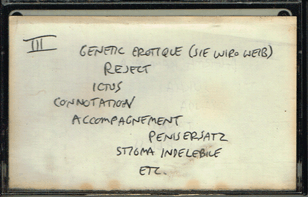 III
GENETIC EROTIQUE (SIE WIRD WEIB)
REJECT
ICTUS
CONNOTATION
ACCOMPAGNEMENT
PENISERSATZ
STIGMA INDELEBILE
ETC.